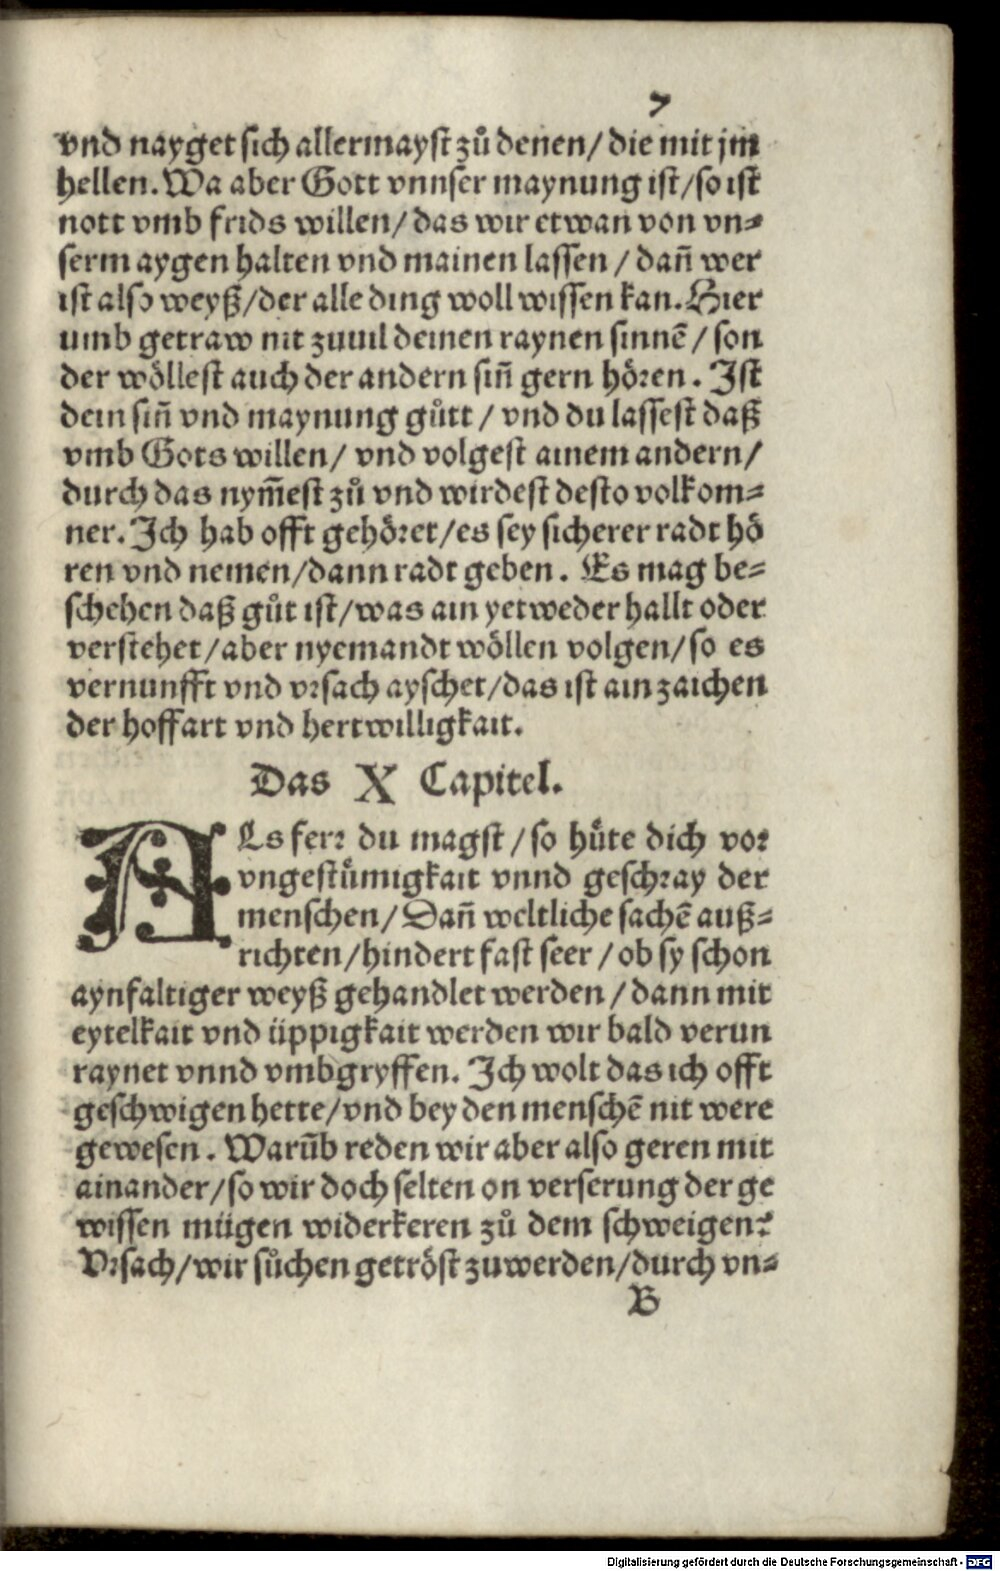 7
vnd nayget sich allermayst zů denen/ die mit jm
hellen. Wa aber Gott vnnser maynung ist/so ist
nott vmb frids willen/ das wir etwan von vn⸗
serm aygen halten vnd mainen lassen / dañ wer
ist also weyß/der alle ding woll wissen kan. Hier
umb getraw nit zuuil deinen raynen sinnē / son
der wöllest auch der andern siñ gern hören. Ist
dein siñ vnd maynung gůtt / vnd du lassest daß
vmb Gots willen/ vnd volgest ainem andern/
durch das nym̃est zů vnd wirdest desto volkom⸗
ner. Ich hab offt gehöret/es sey sicherer radt hö
ren vnd nemen/dann radt geben. Es mag be⸗
schehen daß gůt ist/was ain yetweder hallt oder
verstehet/aber nyemandt wöllen volgen/so es
vernunfft vnd vrsach ayschet/das ist ain zaichen
der hoffart vnd hertwilligkait.
Das X Capitel.
ALs ferr du magst /so hüte dich vor
vngestümigkait vnnd geschray der
menschen/ Dañ weltliche sachē auß⸗
richten/hindert fast seer / ob sy schon
aynfaltiger weyß gehandlet werden / dann mit
eytelkait vnd üppigkait werden wir bald verun
raynet vnnd vmbgryffen. Ich wolt das ich offt
geschwigen hette/vnd bey den menschē nit were
gewesen. Warūb reden wir aber also geren mit
ainander/so wir doch selten on verserung der ge
wissen mügen widerkeren zů dem schweigen?
Vrsach/wir sůchen getröst zuwerden/durch vn⸗
B
Digitalisierung gefördert durch die Deutsche Forschungsgemeinschaft - DFG